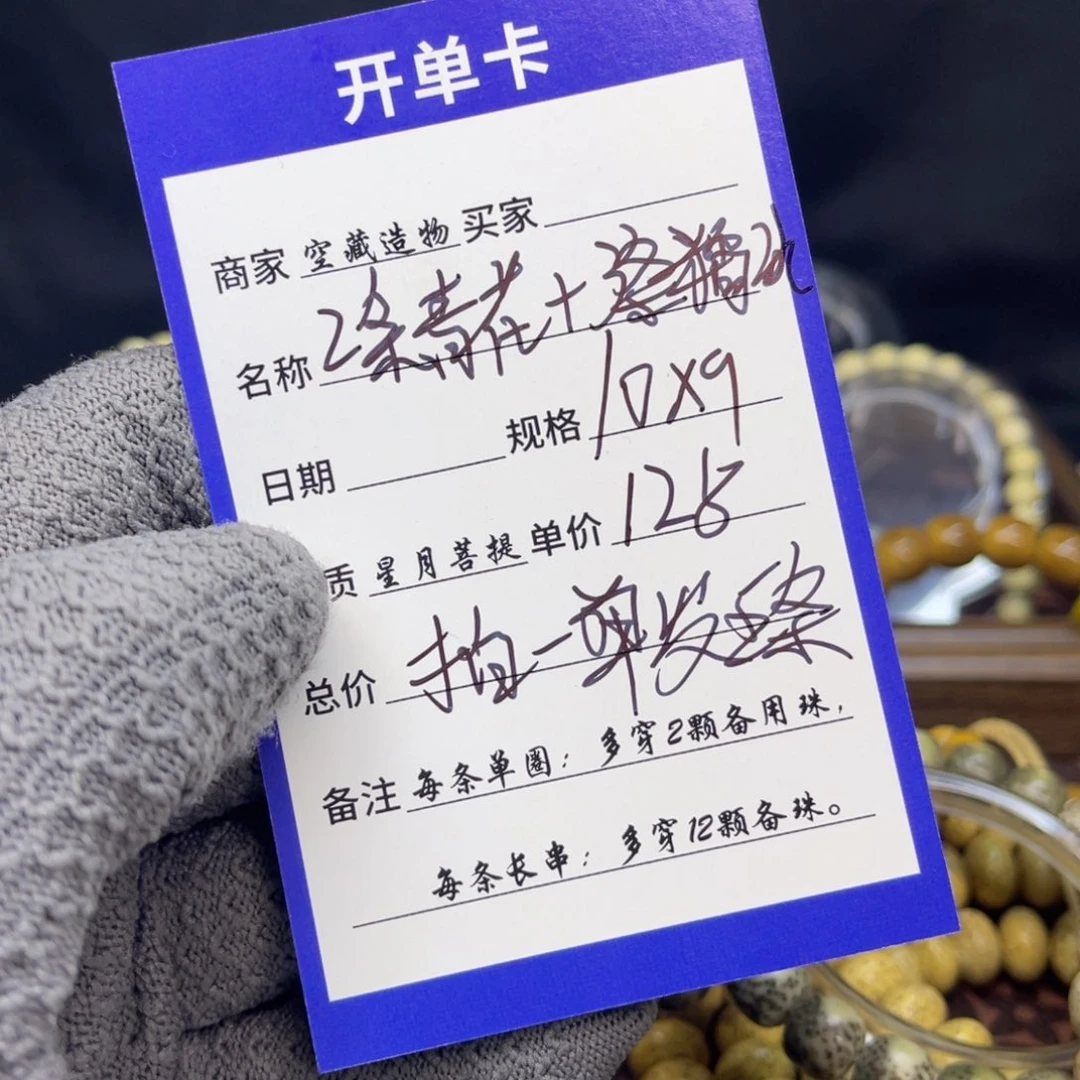 开单卡
商家 空藏造物 买家
名称 2条青花+ 糖
日期 规格 10×9
质 星月菩提 单价 128
总价 拍一单发 条
备注 每条单圈：多穿2颗备用珠，
每条长串：多穿12颗备珠。